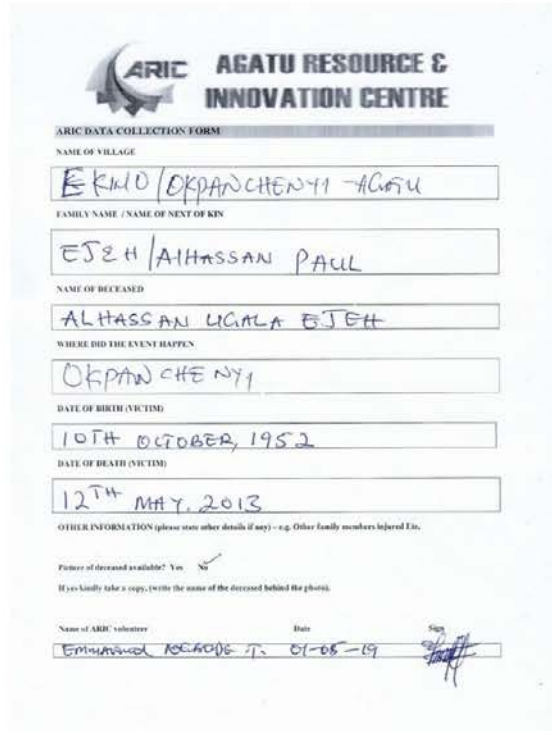 ARIC AGATU RESOURCE &
INNOVATION CENTRE
ARIC DATA COLLECTION FORM
NAME OF VILLAGE
EKWO/OKPANCHENYI-AGATU
FAMILY NAME / NAME OF NEXT OF KIN
EJEH/AlHASSAN PAUL
NAME OF DECEASED
ALHASSAN UGALA EJEH
WHERE DID THE EVENT HAPPEN
OKPANCHENYI
DATE OF BIRTH (VICTIM)
10TH OCTOBER, 1952
DATE OF DEATH (VICTIM)
12TH MAY, 2013
OTHER INFORMATION (please state other details if any) – e.g. Other family members injured Etc.
Picture of deceased available? Yes No
If yes kindly take a copy, (write the name of the deceased behind the photo).
Name of ARIC volunteer Date Sign
Emmanuel T. 01-05-19